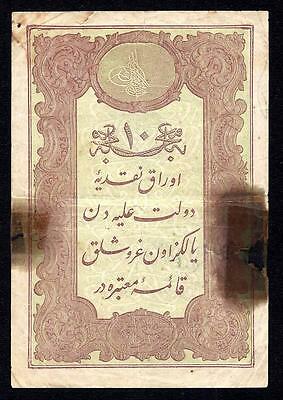 ١٠
اوراق نقديهٔ
دولت عليه دن
يالكز اون غروشلق
قائمهٔ معتبره در